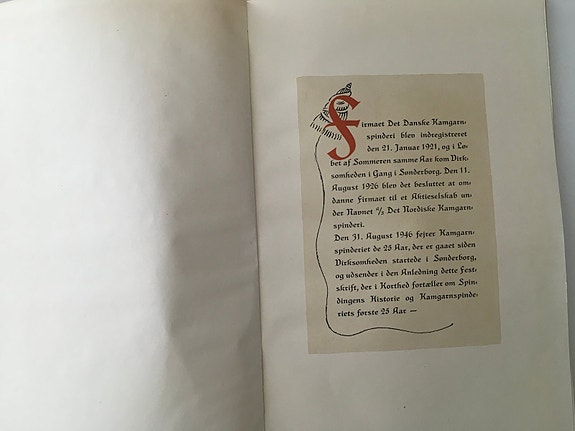 Firmaet Det Danske Kamgarn-
spinderi blev indregistreret
den 21. Januar 1921, og i Lø-
bet af Sommeren samme Aar kom Virk-
somheden i Gang i Sønderborg. Den 11.
August 1926 blev det besluttet at om-
danne Firmaet til et Aktieselskab un-
der Navnet A/S Det Nordiske Kamgarn-
spinderi.
Den 31. August 1946 fejrer Kamgarn-
spinderiet de 25 Aar, der er gaaet siden
Virksomheden startede i Sønderborg,
og udsender i den Anledning dette Fest-
skrift, der i Korthed fortæller om Spin-
dingens Historie og Kamgarnspinde-
riets første 25 Aar —